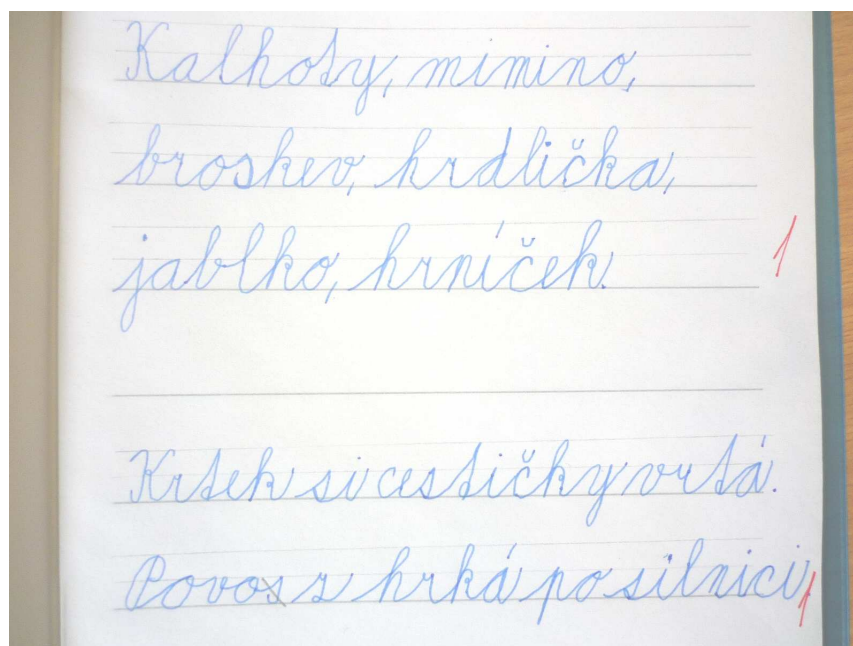 Kalhoty, mimino,
broskev, hrdlička,
jablko, hrníček.
1
Krtek si cestičky vrtá.
Povoz hrká po silnici.
1